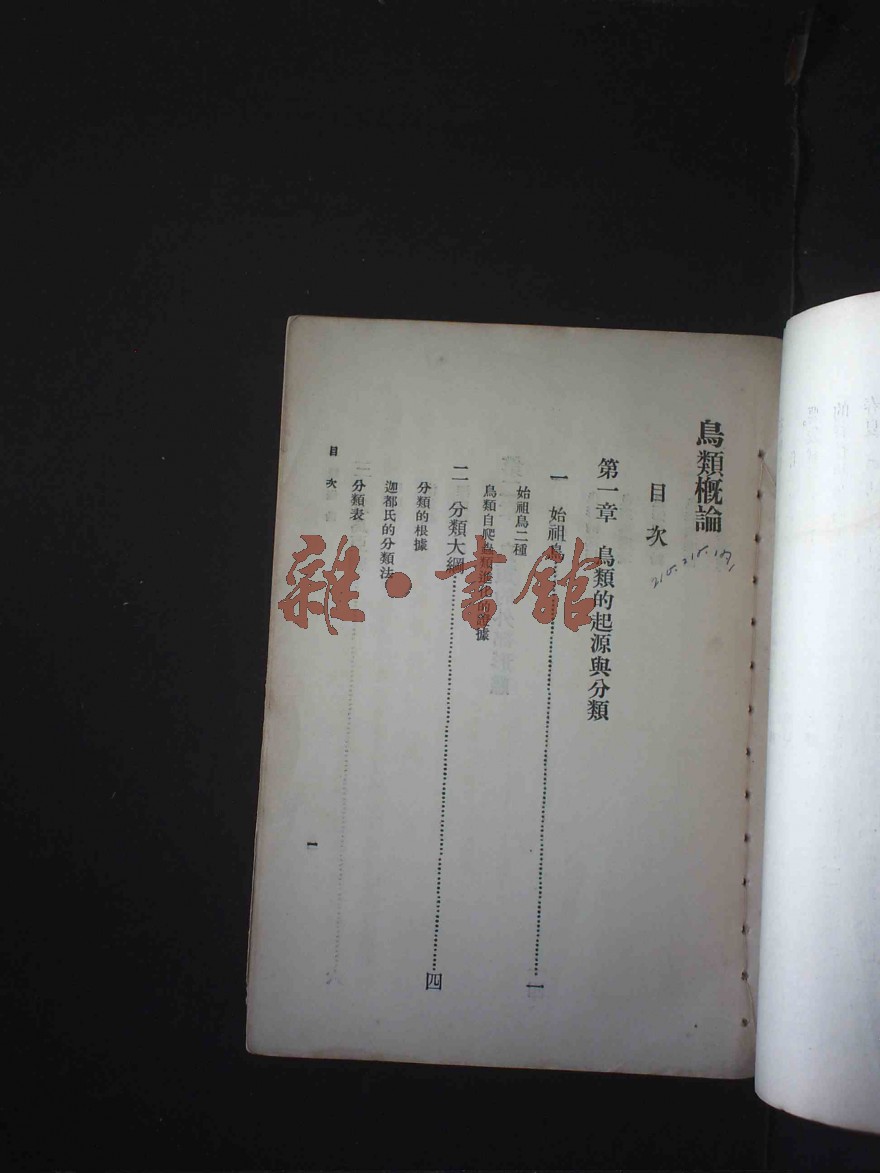 鳥類概論
目次
第一章 鳥類的起源與分類
一 始祖鳥……一
始祖鳥二種
鳥類自爬蟲類進化的證據
二 分類大綱……四
分類的根據
迦都氏的分類法
分類表
目次
一
雜·書館